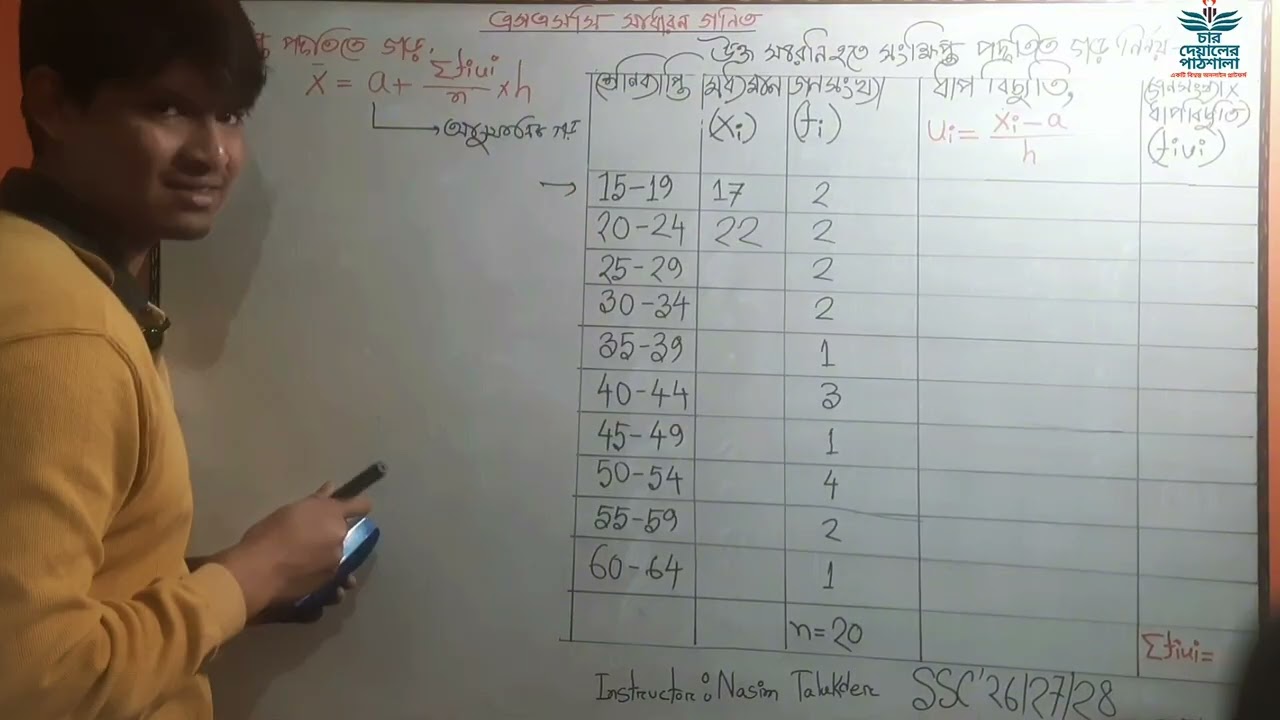 এসএসসি সাধারন গনিত
পদ্ধতিতে গড়:
x̄ = a + Σfiui/n × h
উক্ত সারনি হতে সংক্ষিপ্ত পদ্ধতিতে গড় নির্নয়
চার
দেয়ালের
পাঠশালা
শ্রেনিব্যাপ্তি | মধ্যমান (xi) | জনসংখ্যা (fi) | ধাপ বিচ্যুতি, ui = xi - a/h | (জনসংখ্যা × ধাপবিচ্যুতি) (fiui)
→ 15-19 | 17 | 2
20-24 | 22 | 2
25-29 | 2
30-34 | 2
35-39 | 1
40-44 | 3
45-49 | 1
50-54 | 4
55-59 | 2
60-64 | 1
n=20 | Σfiui=
Instructor: Nasim Talukder SSC'26/27/28